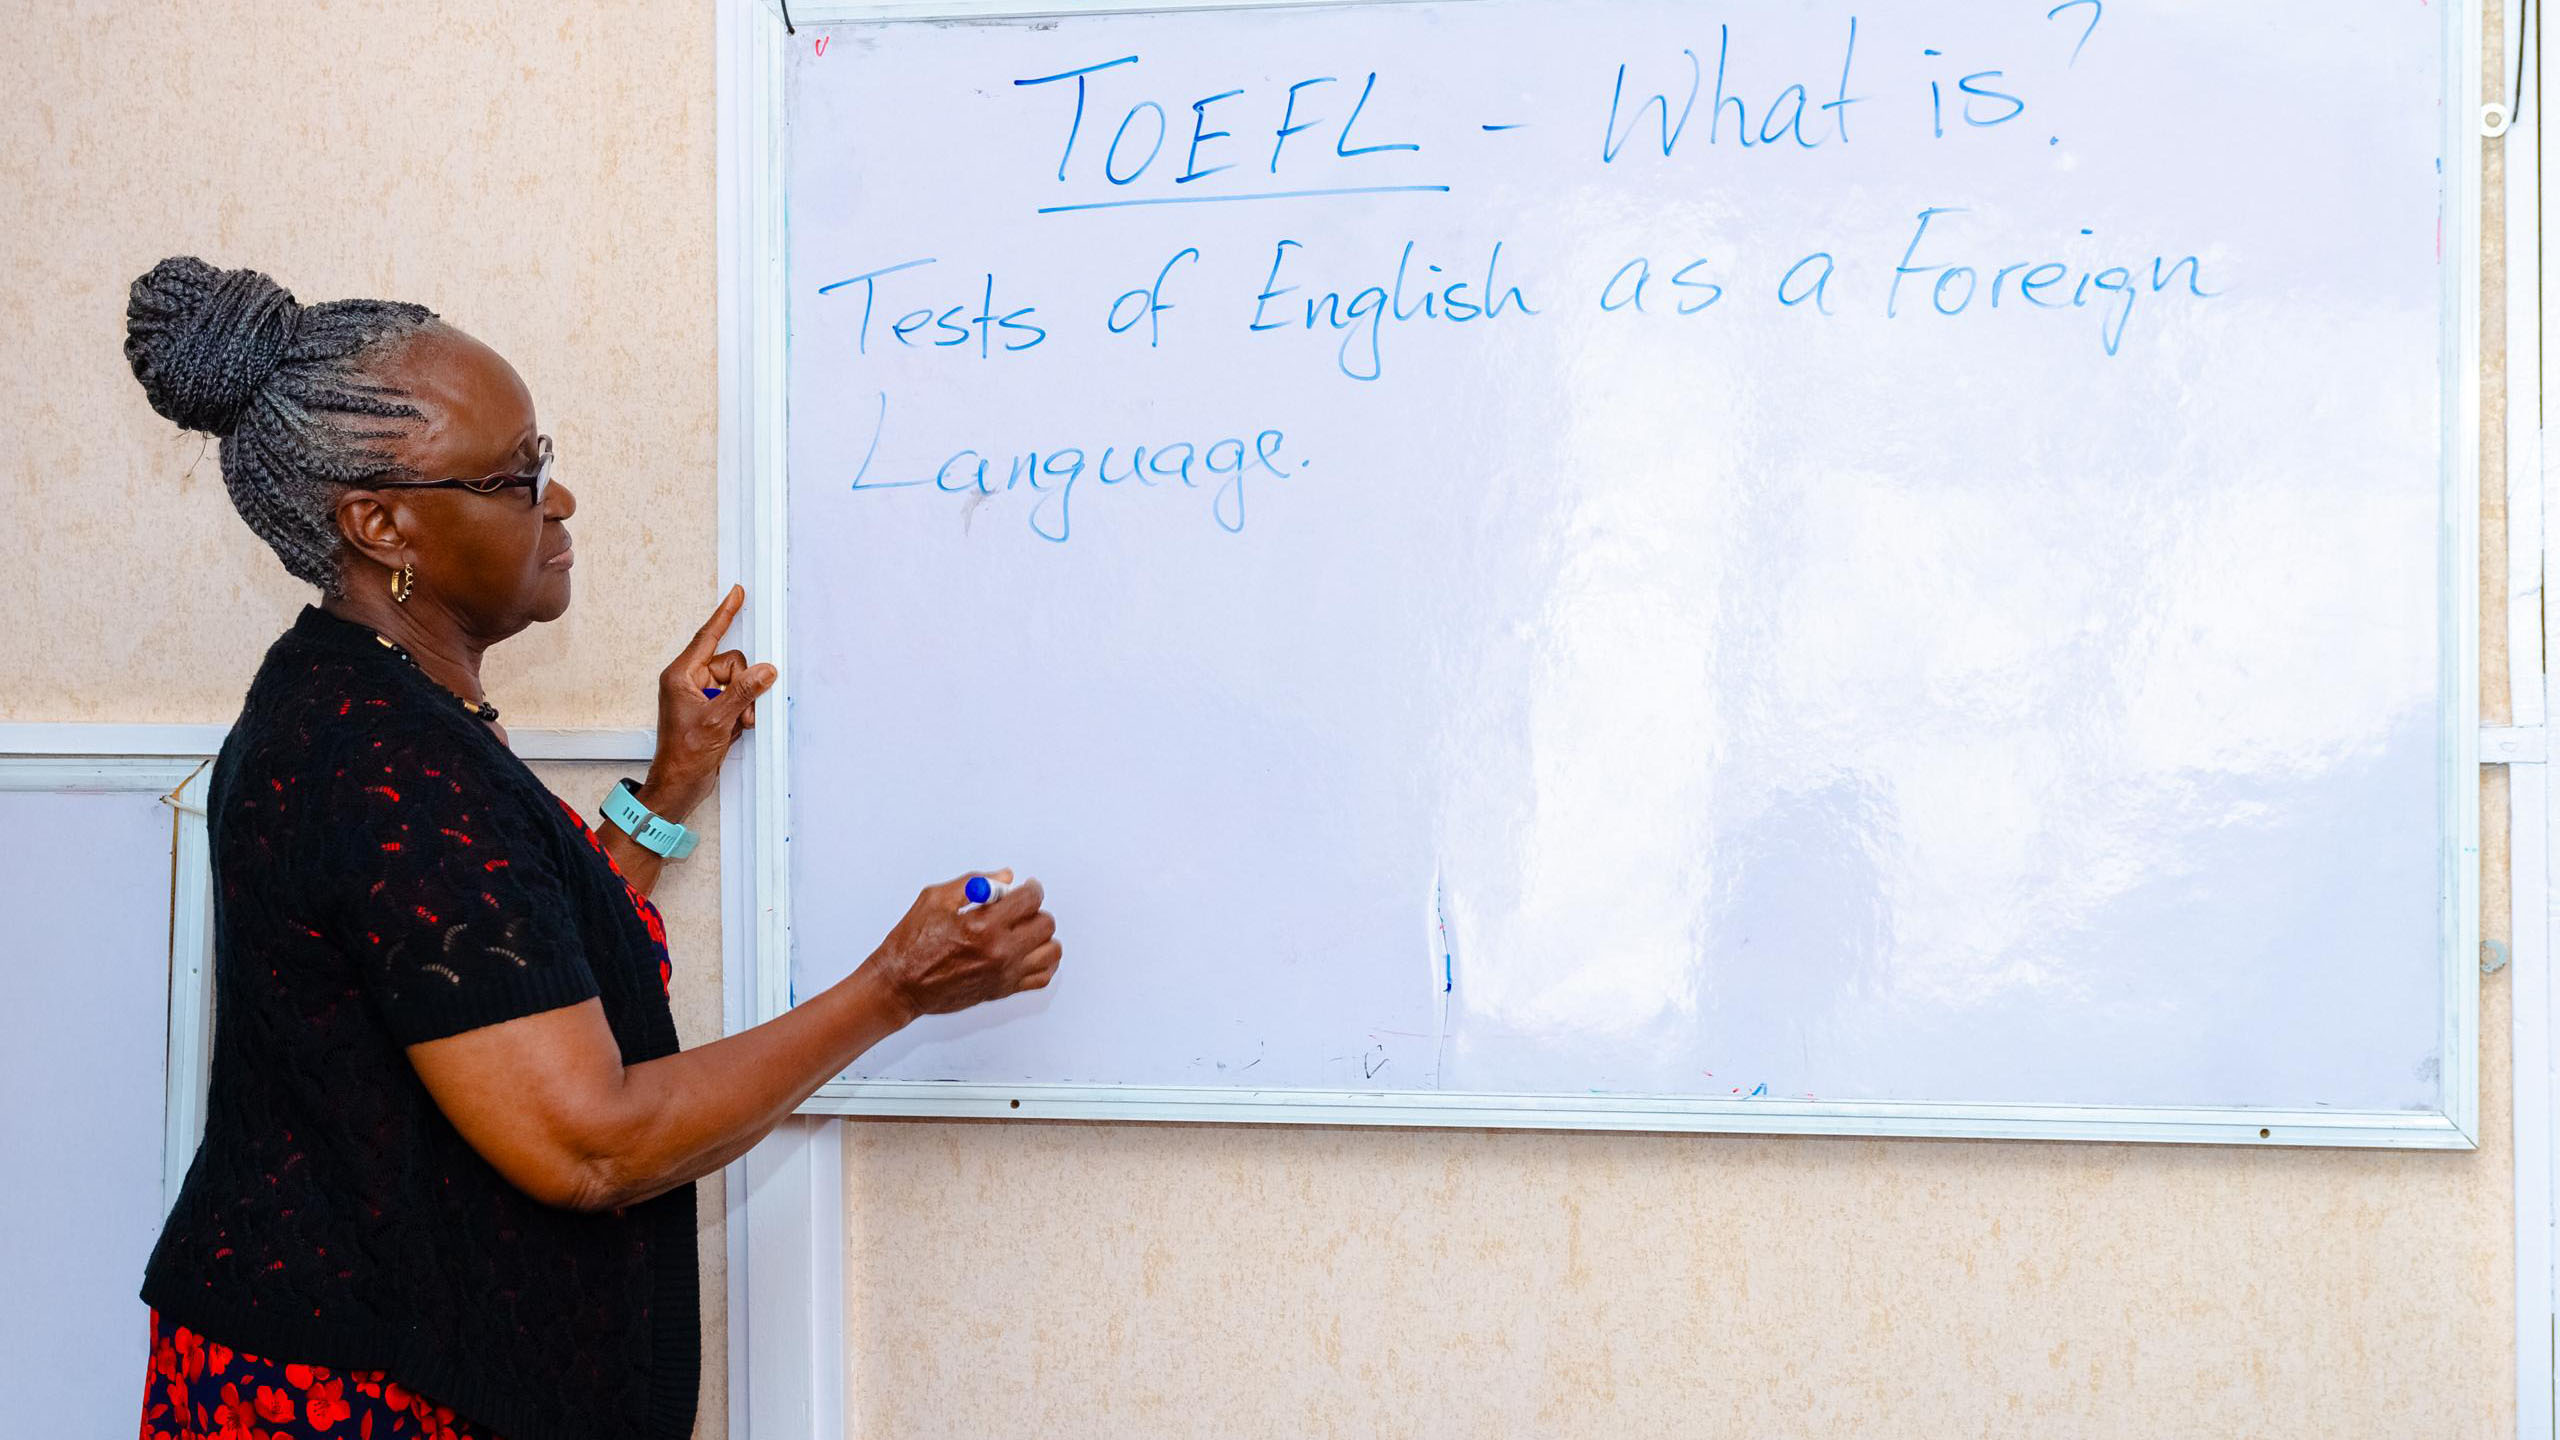 TOEFL - What is?
Tests of English as a Foreign
Language.